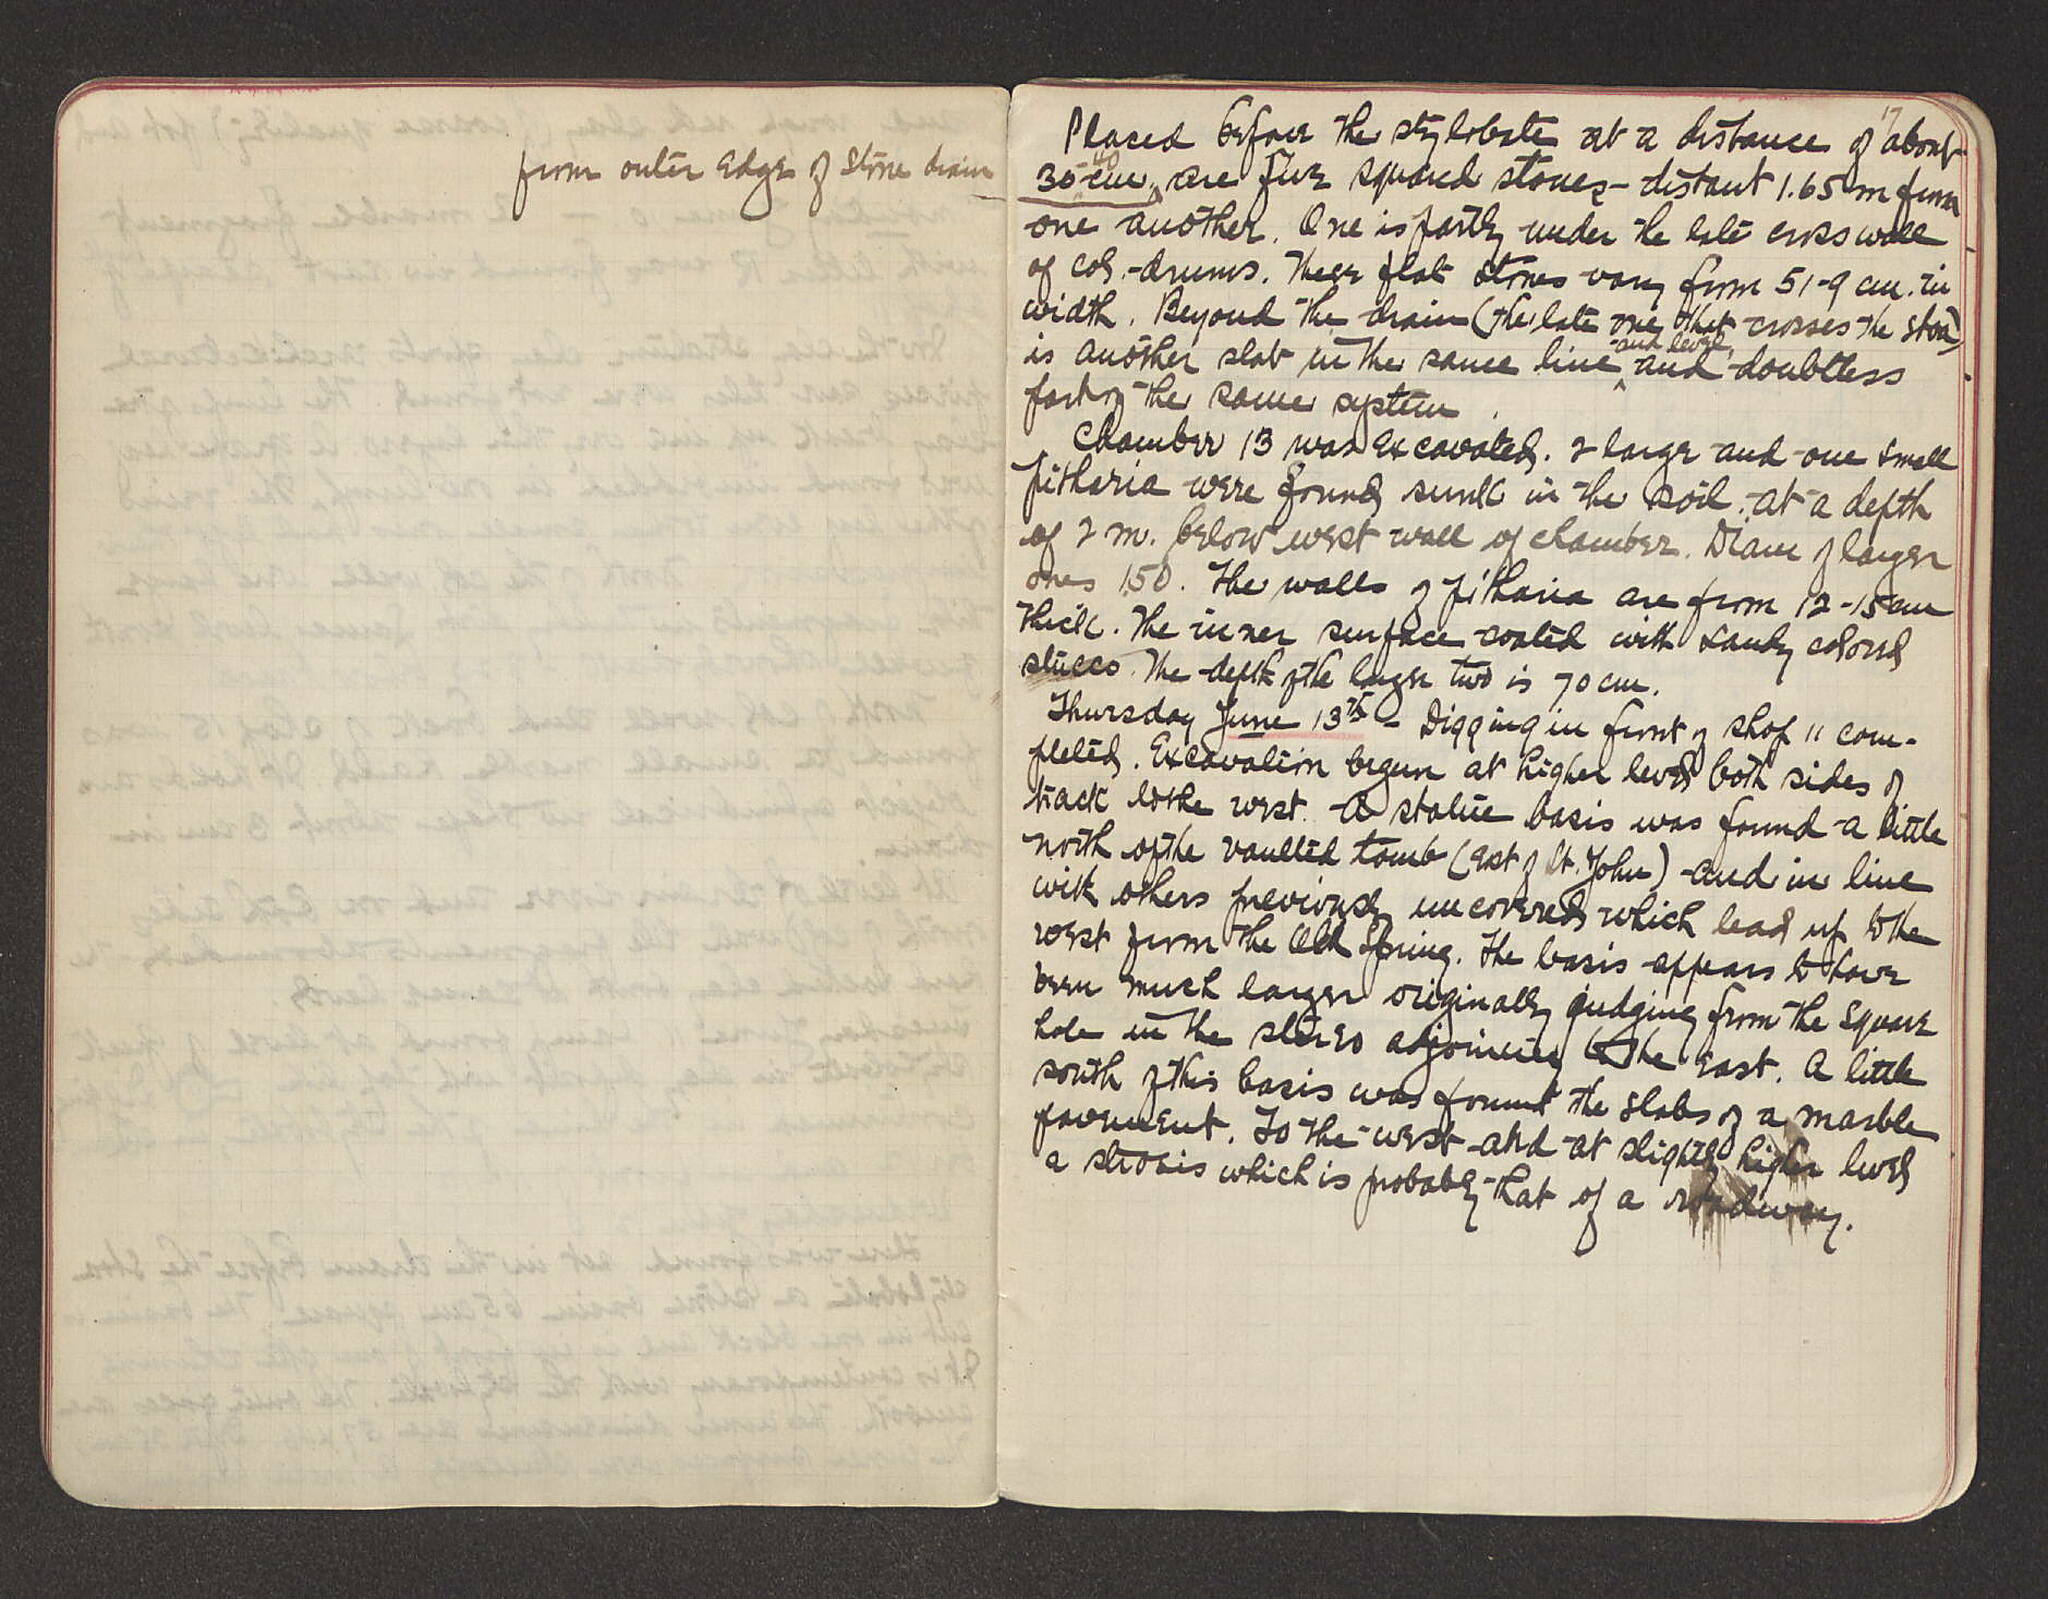 from outer edge of stone drain
17
Placed before the stylobate at a distance of about
30-40 cm, are five squared stones - distant 1.65 m from
one another. One is partly under the late cross wall
of col.-drums. These flat stones vary from 51-9 cm. in
width. Beyond the drain (the late one that crosses the stoa)
is another slab in the same line and level, and doubtless
part of the same system.
Chamber 13 was excavated. 2 large and one small
pitharia were found sunk in the soil. at a depth
of 2 m. below west wall of chamber. Diam of larger
ones 1.50. The walls of pitharia are from 12-15 cm
thick. The inner surface coated with sandy colored
stucco. The depth of the larger two is 70 cm.
Thursday June 13th - Digging in front of shop 11 com-
pleted. Excavation begun at higher level both sides of
track to the west. A statue basis was found a little
north of the vaulted tomb (East of St. John) and in line
with others previously uncovered which lead up to the
west from the Old Spring. The basis appears to have
been much larger originally judging from the square
hole in the stereo adjoining to the east. A little
south of this basis was found the slabs of a marble
pavement. To the west and at slightly higher level
a strosis which is probably that of a roadway.